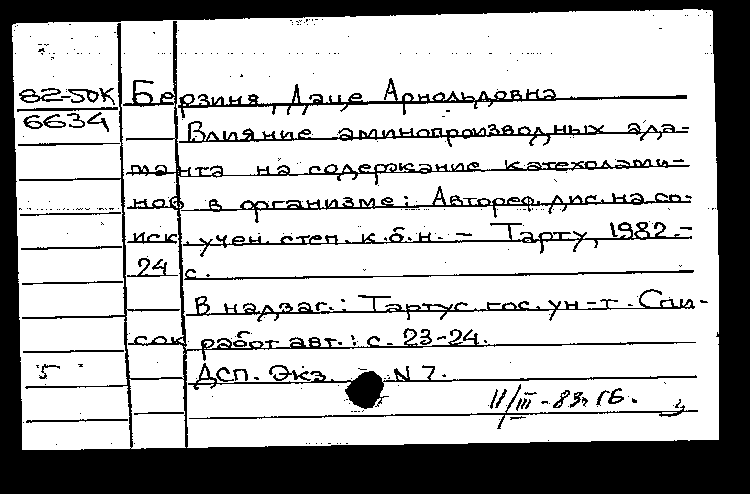 82-50К Берзиня, Даце Арнольдовна
6634 Влияние аминопроизводных ада-
манта на содержание катехолами-
нов в организме: Автореф. дис. на со-
иск. учен. степ. к.б.н. - Тарту, 1982.-
24 с.
В надзаг.: Тартус. гос. ун-т. Спи-
сок работ авт.: с. 23-24.
5 ДСП. Экз. N 7.
11/III-83г ГБ.